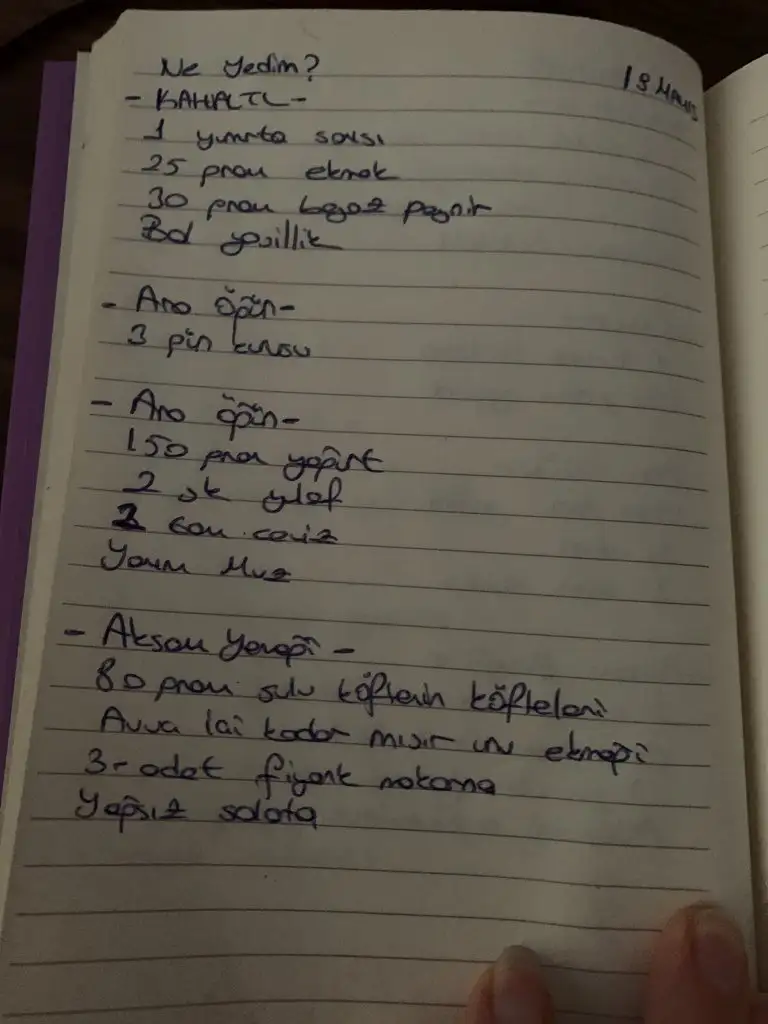 Ne Yedim?
19 MAYIS
- KAHALTI -
1 yumrta sarısı
25 gram ekmek
30 gram beyaz peynir
Bol yeşillik
- Ara öğün -
3 gün kurusu
- Ara öğün -
150 gram yoğurt
2 yk yulaf
2 tam ceviz
Yarım Muz
- Akşam Yemeği -
80 gram sulu köftenin köfteleri
Avuç içi kadar mısır unu ekmeği
3- adet fiyonk makarna
Yağsız salata